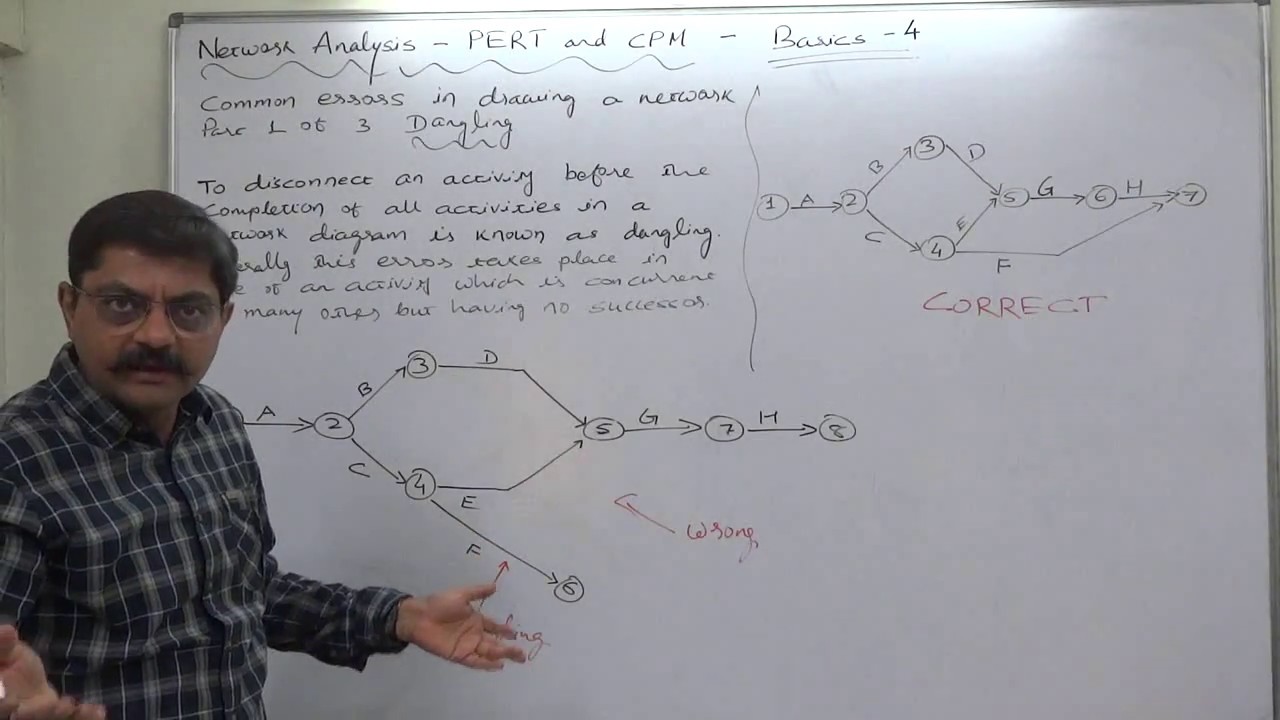 Network Analysis - PERT and CPM - Basics - 4
Common errors in drawing a network
Part 1 of 3 Dangling
To disconnect an activity before the
completion of all activities in a
diagram is known as dangling.
this error takes place in
of an activity which is concurrent
many others but having no successor.
1 A 2 B 3 D C 4 E 5 G 6 H 7 F
CORRECT
A 2 B 3 D C 4 E 5 G 7 H 8
F 6
Wrong